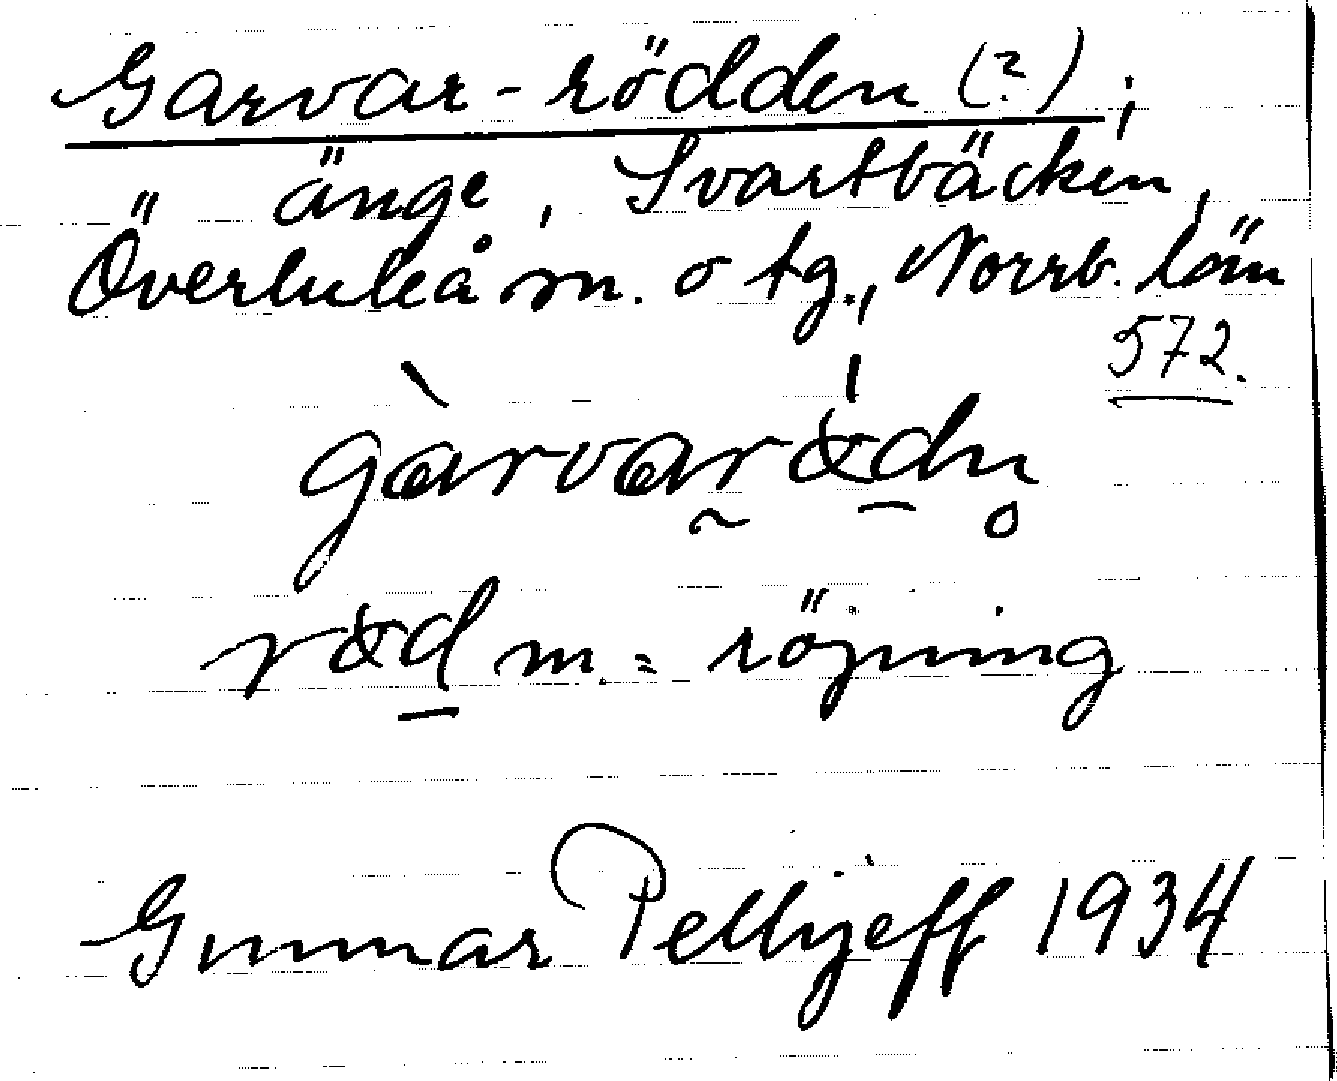 Garvar-rödden (?),
änge, Svartbäcken,
Överluleå sn. o tg., Norrb. län
572.
gàrvarödn̥
röd m. = röjning
Gunnar Pellijeff 1934